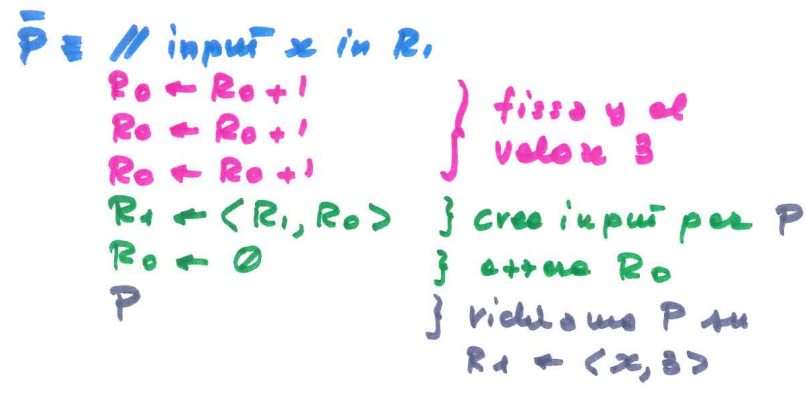 P̄ ≡ // input x in R₁
R₀ ← R₀ + 1
R₀ ← R₀ + 1 } fissa y al
R₀ ← R₀ + 1 valore 3
R₁ ← <R₁, R₀> } crea input per P
R₀ ← 0 } azzera R₀
P } richiamo P su
R₁ ← <x, 3>